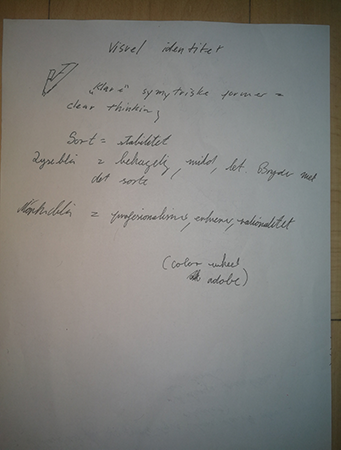 Visuel identitet
"Klare" symytriske former =
clear thinking
Sort = stabilitet
Lyseblå = behagelig, mild, let. Bryder med
det sorte
Mørkeblå = profesionalisme, erhverv, rationalitet
(color wheel
adobe)